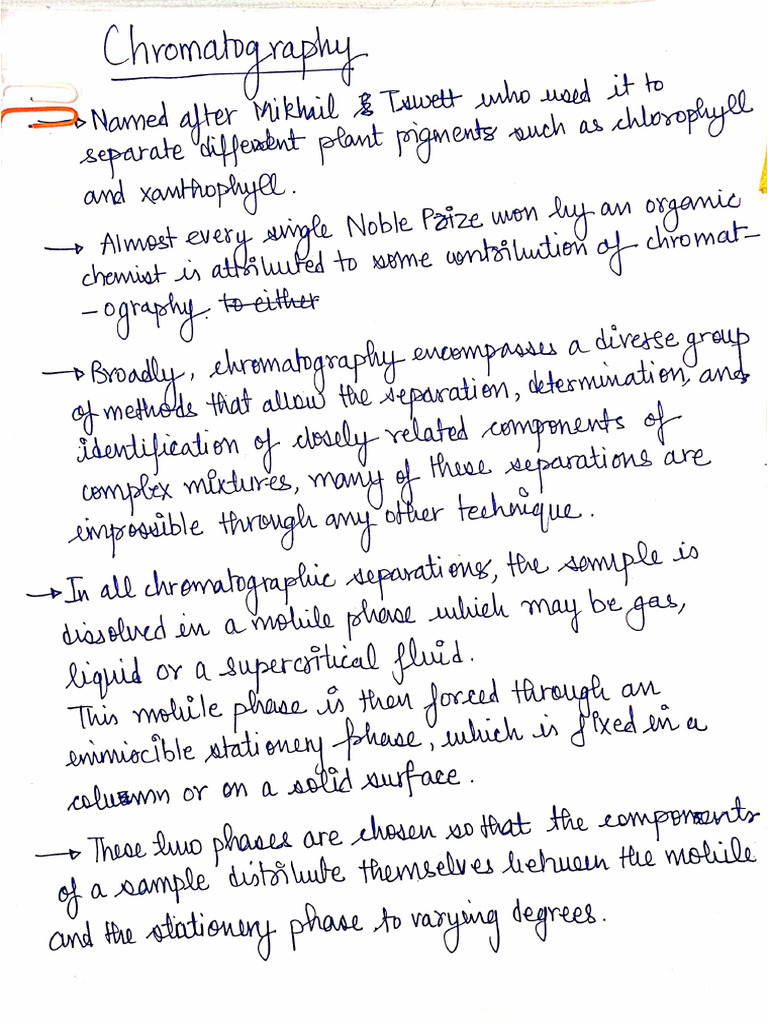 Chromatography
→ Named after Mikhail Tswett who used it to
separate different plant pigments such as chlorophyll
and xanthophyll.
→ Almost every single Noble Prize won by an organic
chemist is attributed to some contribution of chromat-
-ography. to either
→ Broadly, chromatography encompasses a diverse group
of methods that allow the separation, determination, and
identification of closely related components of
complex mixtures, many of these separations are
impossible through any other technique.
→ In all chromatographic separations, the sample is
dissolved in a mobile phase which may be gas,
liquid or a supercritical fluid.
This mobile phase is then forced through an
immiscible stationery phase, which is fixed in a
column or on a solid surface.
→ These two phases are chosen so that the components
of a sample distribute themselves between the mobile
and the stationery phase to varying degrees.